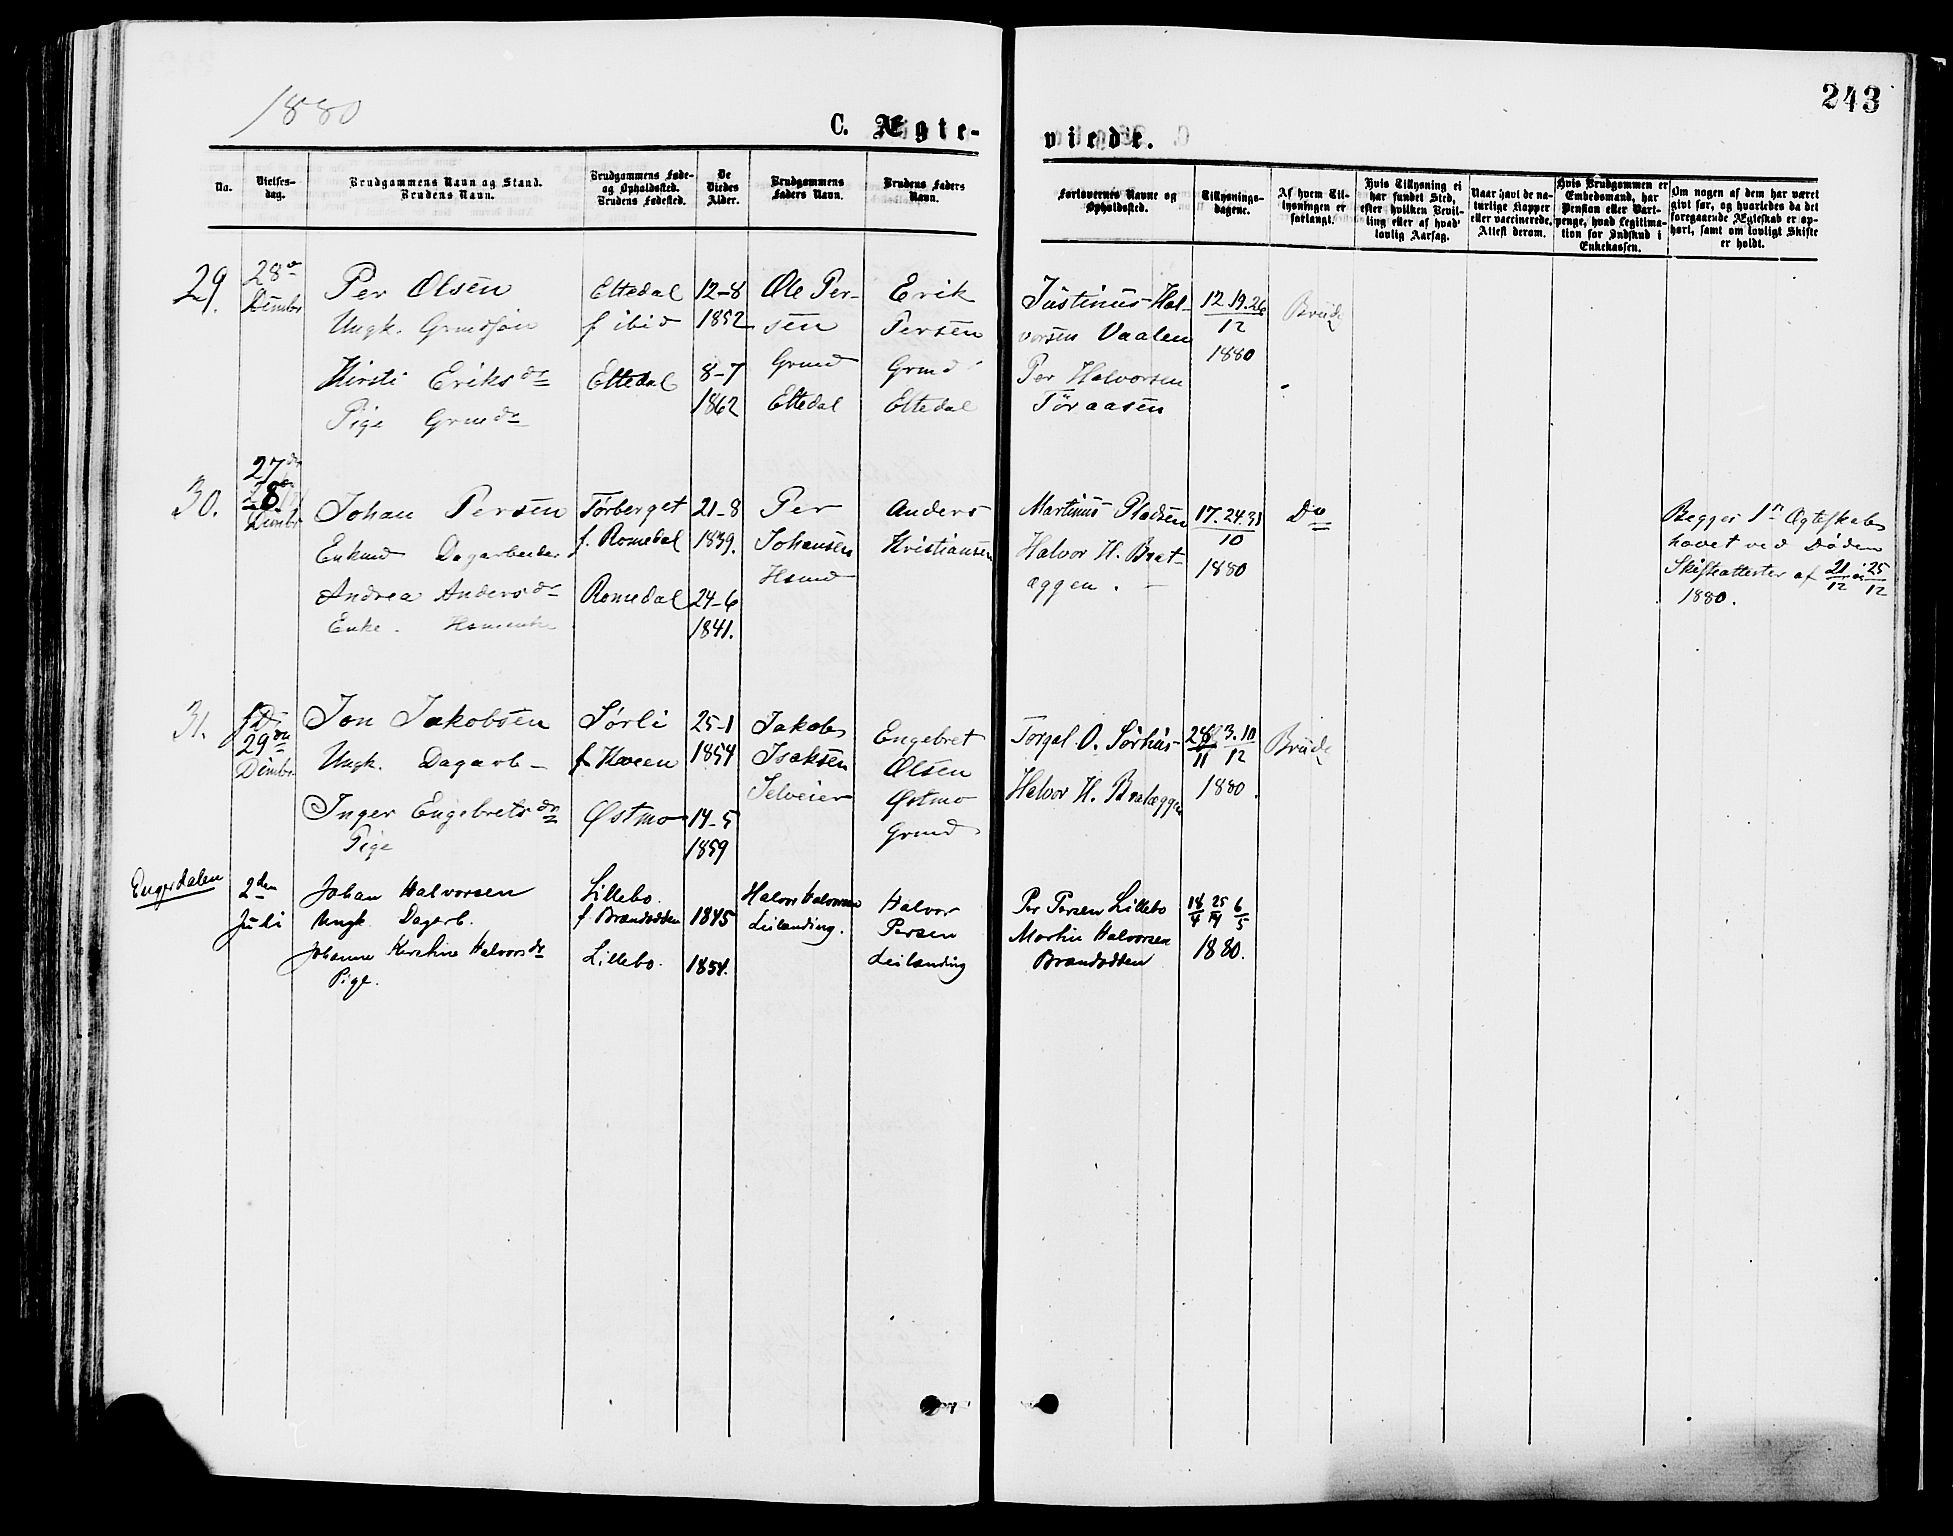 1880
243
C. Ægte-
viede.
No.
Vielses-
dag.
Brudgommens Navn og Stand.
Brudens Navn.
Brudgommens Føde-
og Opholdssted.
Brudens Fødested.
De
Viedes
Alder.
Brudgommens
Faders Navn.
Brudens Faders
Navn.
Forlovernes Navne og
Opholdssted.
Tillysnings-
dagene.
Af hvem Til-
lysningen er
forlangt.
Hvis Tillysning ei
har fundet Sted,
efter hvilken Bevil-
ling eller af hvad
lovlig Aarsag.
Naar havt de na-
turlige Kopper
eller vaccinerede.
Attest derom.
Hvis Brudgommen er
Embedsmand, har
Pension eller Vart-
penge, hvad Legitima-
tion for Indskud i
Enkekassen.
Om nogen af dem har været
gift før, og hvorledes da det
foregaaende Ægteskab er op-
hørt, samt om lovligt Skifte
er holdt.
29.
28de
Dember
Per Olsen
Ungk.
Kirsti Eriksdr
Pige
Eltedal
f ibid
Eltedal
12-8
1852
8-7
1862
Ole Per-
sen
Grmd
Eltedal
Erik
Persen
Grmd
Eltedal
Justinus Hal-
vorsen Vaalen
Per Halvorsen
Føraasen
12.19.26
12
1880
Brud
30.
27de
28
Johan Persen
Enkmd Dagarbeider
Andrea Andersdr
Enke.
Tørberget
f. Romedal
Romedal
21-8
1839.
24-6
1841.
Per
Johansen
Husmd
Anders
Kristiansen
Martinus Pladsen
Halvor H. Brat-
æggen.
17.24.31
10
1880
Do
Begges 1n Ægteskab
hævet ved Døden
Skifteattester af 21/12 & 25/12
1880.
31.
29de
Dember
Jon Jakobsen
Ungk. Dagarb
Inger Engebretsdr
Pige
Sørli
f
Østmo
25-1
1854
14-5
1859
Jakob
Isaksen
Selveier
Engebret
Olsen
Østmo
Grmd
Torgal O. Sørhus
Halvor H. Bratæggen
28/11 3.10/12
1880.
Brud
Engerdalen
2den
Juli
Johan Halvorsen
Ungk Dagarb.
Johanne Kirstine Halvorsdr
Pige.
Lillebo.
f. Brændodden
Lillebo.
1845
1854.
Halvor Halvorsen
Leilænding.
Halvor
Persen
Leilænding
Per Persen Lillebo
Martin Halvorsen
Brændodden
18/4 25/4 6/5
1880.